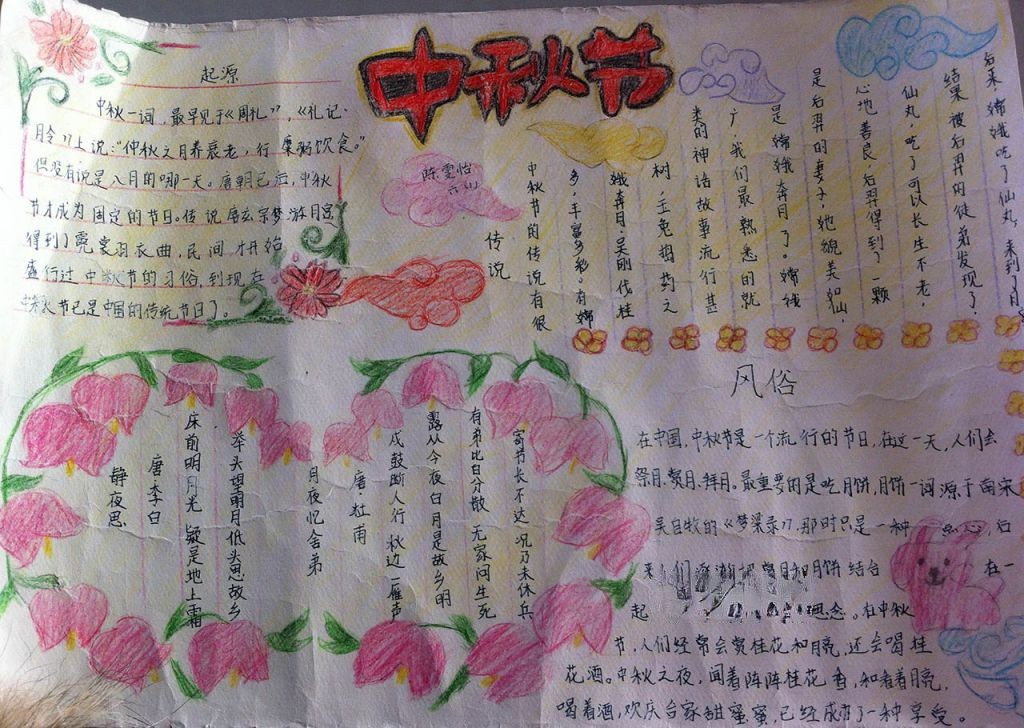 中秋节
起源
中秋一词,最早见于《周礼》,《礼记·
月令》上说:"仲秋之月养衰老,行糜粥饮食。"
但没有说是八月的哪一天。唐朝已后,中秋
节才成为固定的节日。传说唐玄宗梦游月宫
得到了霓裳羽衣曲,民间才开始
盛行过中秋节的习俗,到现在
中秋节已是中国的传统节日了。
陈雯怡
传说
中秋节的传说有很
多,丰富多彩。有嫦
娥奔月,吴刚伐桂
树,玉兔捣药之
类的神话故事流行甚
广,我们最熟悉的就
是嫦娥奔月了。嫦娥
是后羿的妻子,她貌美如仙,
心地善良,后羿得到了一颗
仙丸,吃了可以长生不老,
结果被后羿的徒弟发现了。
后来,嫦娥吃了仙丸,来到了月
静夜思
唐李白
床前明月光 疑是地上霜
举头望明月低头思故乡
月夜忆舍弟
唐·杜甫
戍鼓断人行 秋边一雁声
露从今夜白月是故乡明
有弟比白分散 无家问生死
寄书长不达 况乃未休兵
风俗
在中国,中秋节是一个流行的节日,在这一天,人们会
祭月、赏月、拜月。最重要的是吃月饼,月饼一词源于南宋
吴自牧的《梦梁录》,那时只是一种点心,后
来人们渐渐把赏月和月饼结合在一
起。在中秋
节,人们经常会赏桂花和月亮,还会喝桂
花酒。中秋之夜,闻着阵阵桂花香,和看着月亮,
喝着酒,欢庆合家甜蜜蜜,已经成了一种享受。